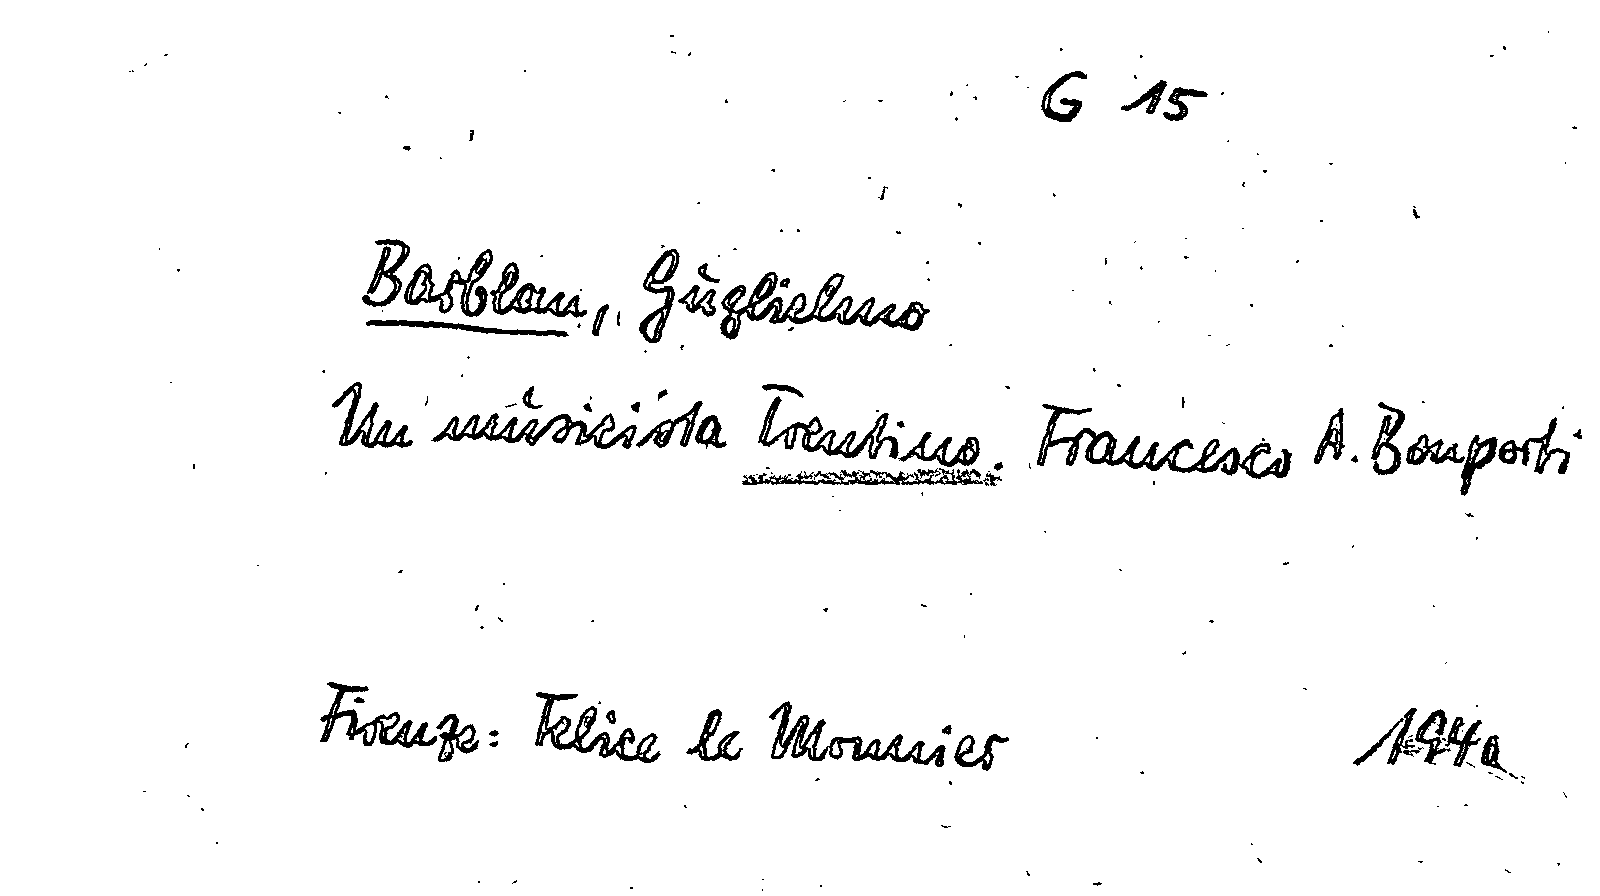 G 15
Barblan, Guglielmo
Un musicista Trentino. Francesco A. Bonporti
Firenze: Felice le Monnier 1940